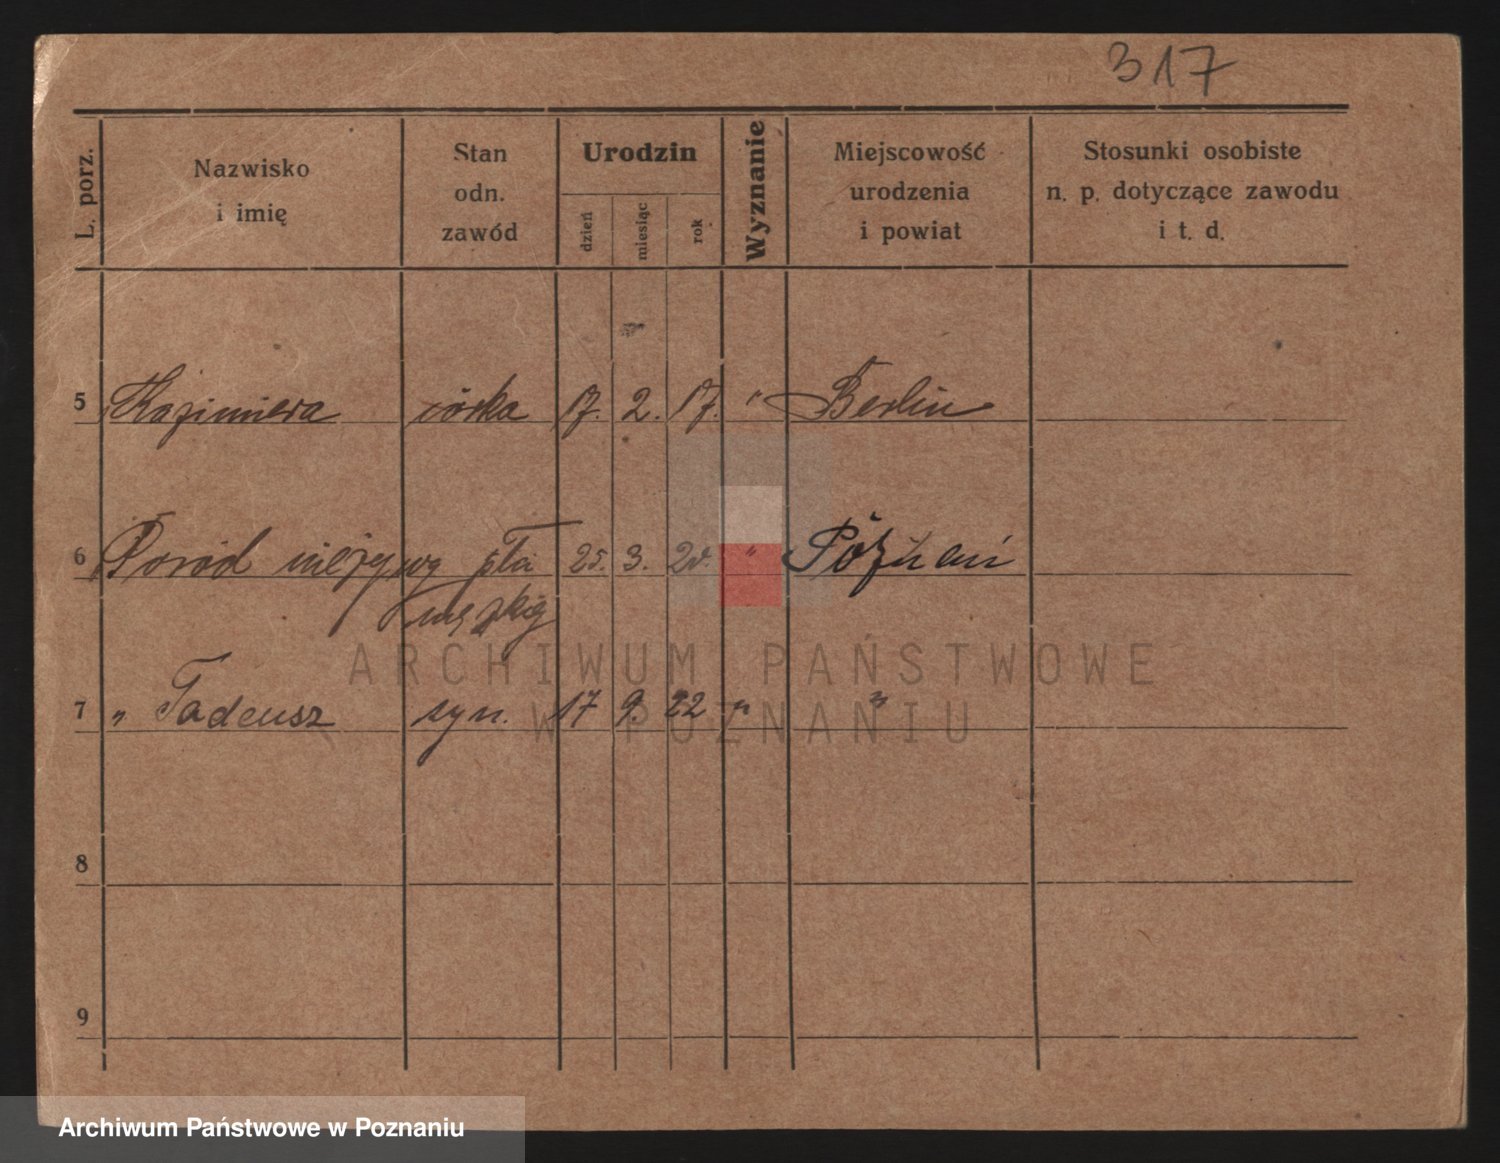 317
L. porz.
Nazwisko
i imię
Stan
odn.
zawód
Urodzin
dzień
miesiąc
rok
Wyznanie
Miejscowość
urodzenia
i powiat
Stosunki osobiste
n. p. dotyczące zawodu
i t. d.
5 Kazimiera córka 17. 2. 17. " Berlin
6 Poród nieżywy płci 25. 3. " Poznań
męskiej
7 " Tadeusz syn. 17 9. 22 " "
8
9
ARCHIWUM PAŃSTWOWE
W POZNANIU
Archiwum Państwowe w Poznaniu